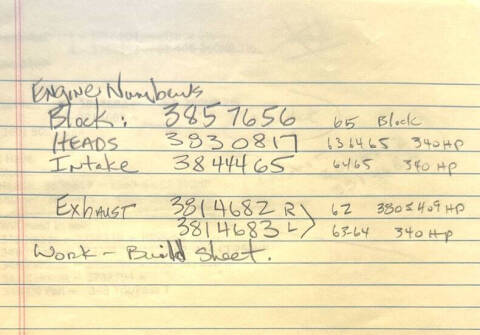 Engine Numbers
Block: 3857656 65 Block
HEADS 3830817 63 64 65 340 HP
Intake 3844465 64 65 340 HP
Exhaust 3814682 R 62 380 & 409 HP
3814683 L 63-64 340 HP
Work - Build Sheet.